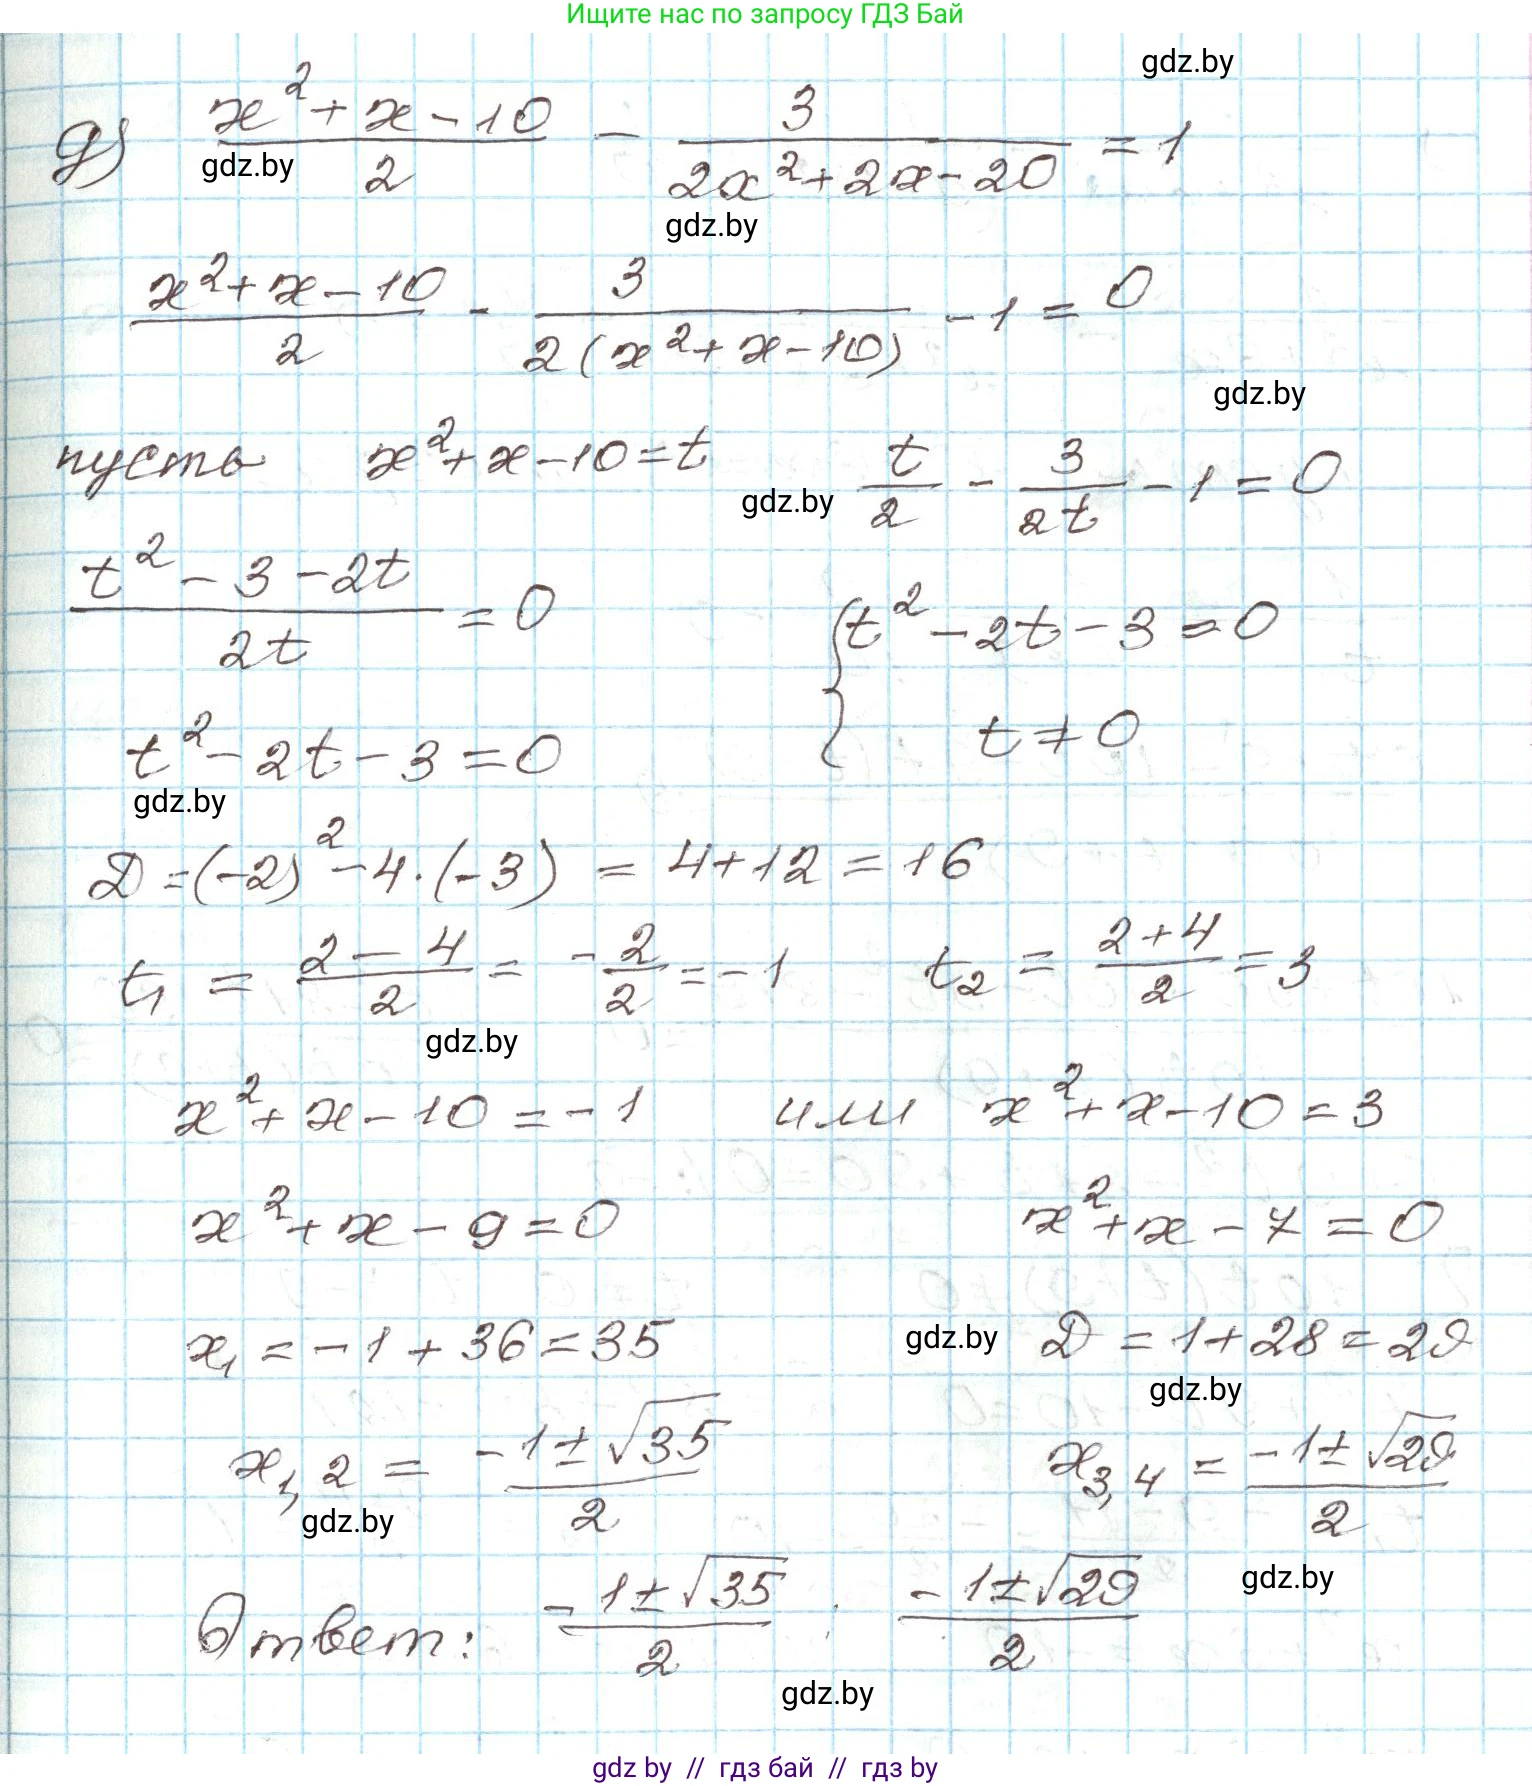 Ищите нас по запросу ГДЗ Бай
gdz.by
д) (x² + x - 10)/2 - 3/(2x² + 2x - 20) = 1
gdz.by
gdz.by
(x² + x - 10)/2 - 3/(2(x² + x - 10)) - 1 = 0
gdz.by
пусть x² + x - 10 = t t/2 - 3/(2t) - 1 = 0
gdz.by
(t² - 3 - 2t)/(2t) = 0 { t² - 2t - 3 = 0
t ≠ 0
t² - 2t - 3 = 0
gdz.by
D = (-2)² - 4 · (-3) = 4 + 12 = 16
t₁ = (2 - 4)/2 = -2/2 = -1 t₂ = (2 + 4)/2 = 3
gdz.by
x² + x - 10 = -1 или x² + x - 10 = 3
x² + x - 9 = 0 x² + x - 7 = 0
x₁ = -1 + 36 = 35 gdz.by D = 1 + 28 = 29
gdz.by
x₁,₂ = (-1 ± √35)/2 x₃,₄ = (-1 ± √29)/2
gdz.by
gdz.by
Ответ: (-1 ± √35)/2 ; (-1 ± √29)/2
gdz.by
gdz by // гдз бай // gdz by